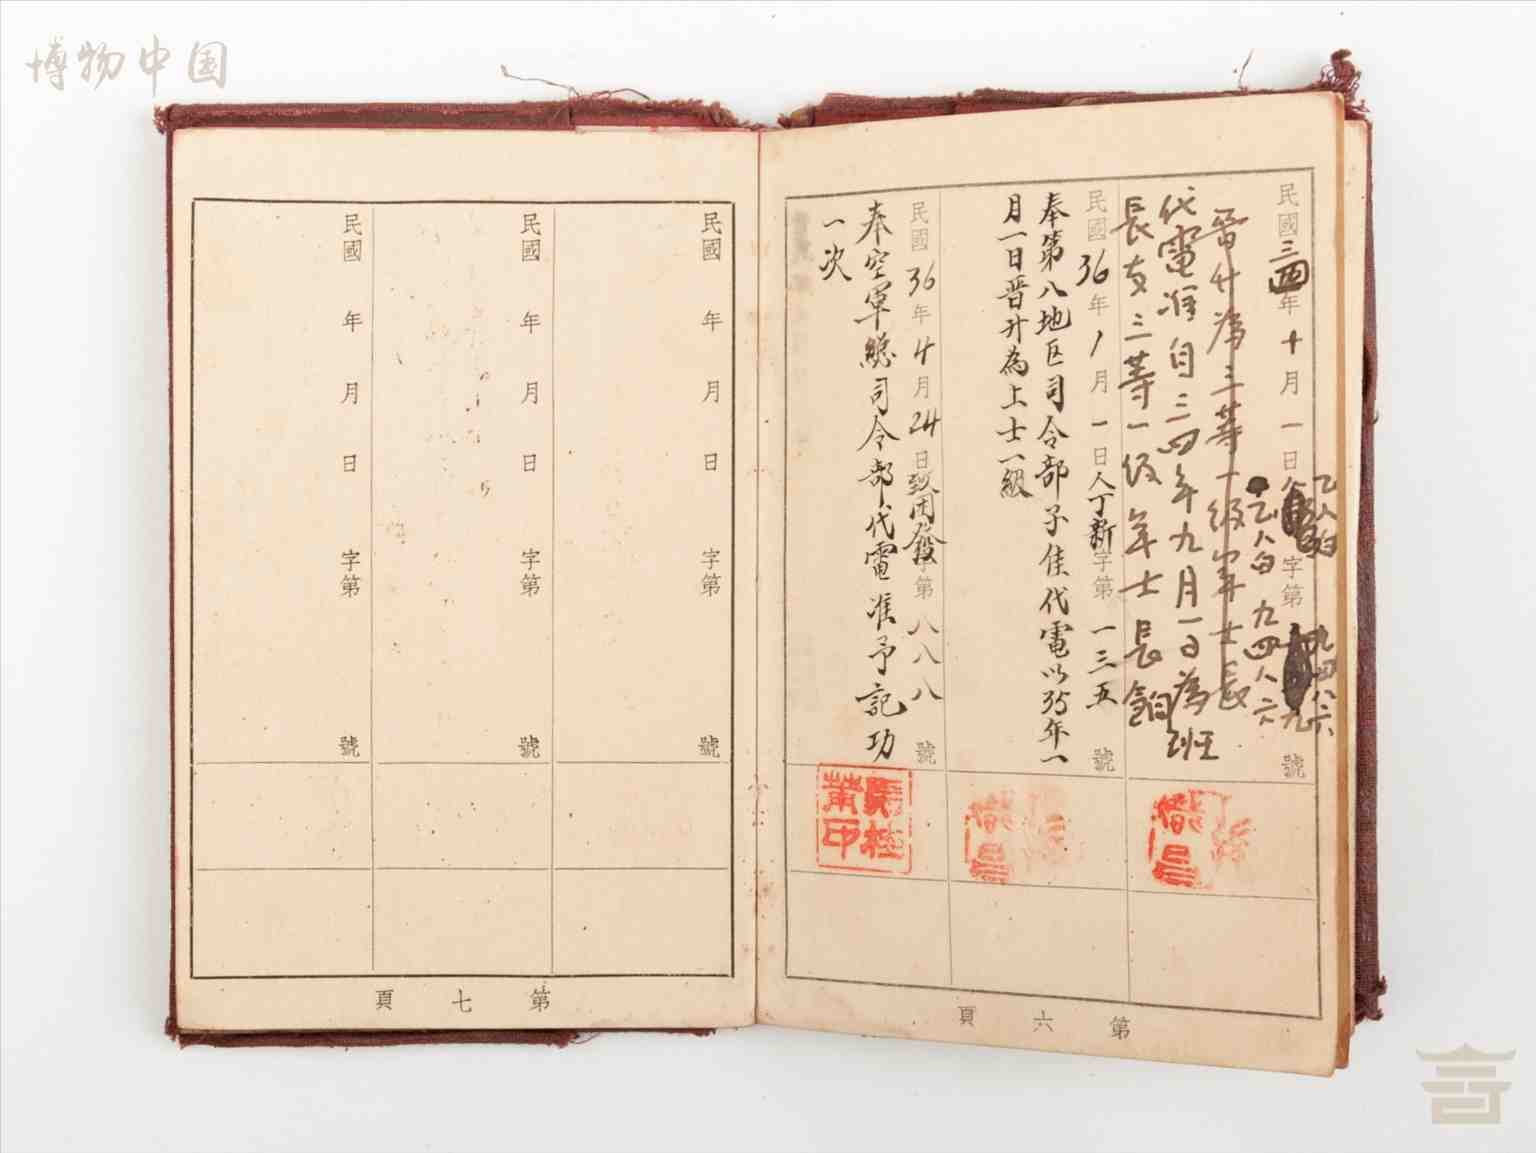 博物中国
民國三四年十月一日 字第 號
乙八白 九四八六
晋升為三等一級軍士長
代電准自三四年九月一日為班
長支三等一級軍士長餉
民國36年1月一日人丁新字第一三五號
奉第八地区司令部子佳代電以35年一
月一日晋升為上士一級
民國36年4月24日 字第八八八號
奉空軍總司令部代電准予記功
一次
第六頁
民國 年 月 日 字第 號
民國 年 月 日 字第 號
民國 年 月 日 字第 號
第七頁